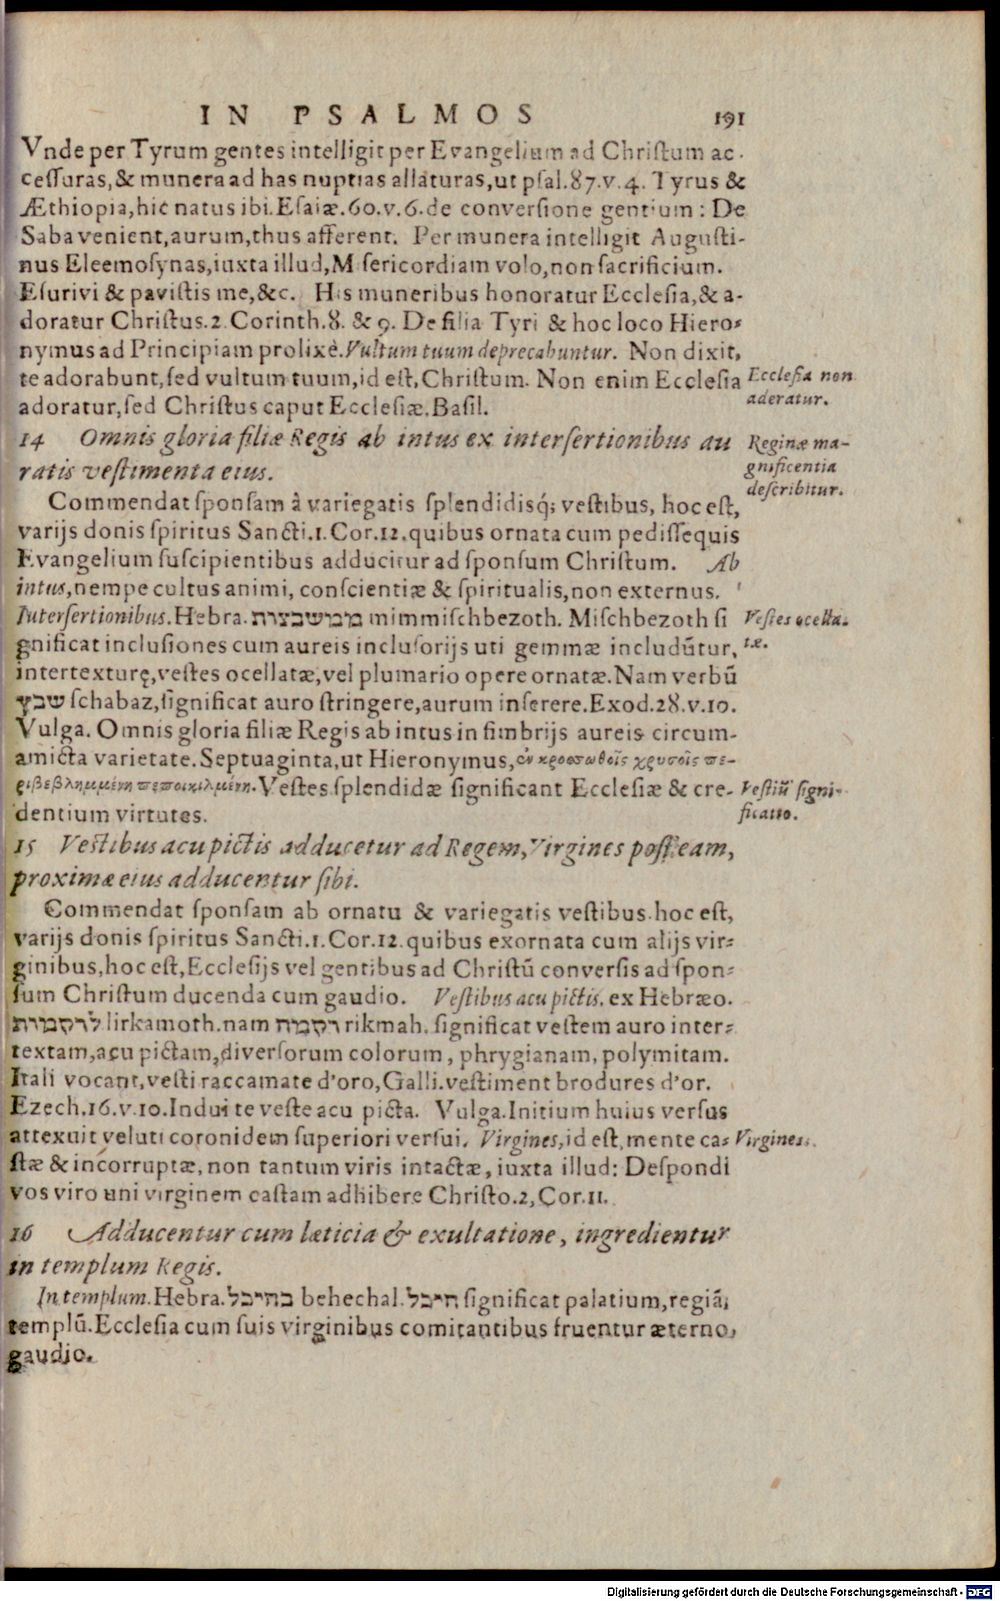 IN PSALMOS 191
Vnde per Tyrum gentes intelligit per Evangelium ad Christum ac-
cessuras, & munera ad has nuptias allaturas, ut psal. 87. v. 4. Tyrus &
Æthiopia, hic natus ibi. Esaiæ. 60. v. 6. de conversione gentium: De
Saba venient, aurum, thus afferent. Per munera intelligit Augusti-
nus Eleemosynas, iuxta illud, Misericordiam volo, non sacrificium.
Esurivi & pavistis me, &c. His muneribus honoratur Ecclesia, & a-
doratur Christus. 2. Corinth. 8. & 9. De filia Tyri & hoc loco Hiero-
nymus ad Principiam prolixè. Vultum tuum deprecabuntur. Non dixit,
te adorabunt, sed vultum tuum, id est, Christum. Non enim Ecclesia
Ecclesia non
adoratur, sed Christus caput Ecclesiæ. Basil.
aderatur.
14 Omnis gloria filiæ Regis ab intus ex intersertionibus au
Reginæ ma-
ratis vestimenta eius.
gnificentia
describitur.
Commendat sponsam â variegatis splendidisq́; vestibus, hoc est,
varijs donis spiritus Sancti. 1. Cor. 12. quibus ornata cum pedissequis
Evangelium suscipientibus adducitur ad sponsum Christum. Ab
intus, nempe cultus animi, conscientiæ & spiritualis, non externus.
Intersertionibus. Hebra. ממושבצות mimmischbezoth. Mischbezoth si
Vestes ocella-
gnificat inclusiones cum aureis inclusorijs uti gemmæ includūtur,
tæ.
intertexturę, vestes ocellatæ, vel plumario opere ornatæ. Nam verbū
שבץ schabaz, significat auro stringere, aurum inserere. Exod. 28. v. 10.
Vulga. Omnis gloria filiæ Regis ab intus in fimbrijs aureis circum-
amicta varietate. Septuaginta, ut Hieronymus, ἐν κροσσωθοῖς χρυσοῖς πε-
ριβεβλημμένη πεποικιλμένη. Vestes splendidæ significant Ecclesiæ & cre-
Vestiū signi-
dentium virtutes.
ficatio.
15 Vestibus acu pictis adducetur ad Regem, Virgines post eam,
proximæ eius adducentur sibi.
Commendat sponsam ab ornatu & variegatis vestibus. hoc est,
varijs donis spiritus Sancti. 1. Cor. 12. quibus exornata cum alijs vir-
ginibus, hoc est, Ecclesijs vel gentibus ad Christū conversis ad spon-
sum Christum ducenda cum gaudio. Vestibus acu pictis. ex Hebræo.
לרקמות lirkamoth. nam רקמה rikmah. significat vestem auro inter-
textam, acu pictam, diversorum colorum, phrygianam, polymitam.
Itali vocant, vesti raccamate d'oro, Galli. vestiment brodures d'or.
Ezech. 16. v. 10. Indui te veste acu picta. Vulga. Initium huius versus
attexuit veluti coronidem superiori versui. Virgines, id est, mente ca-
Virgines.
stæ & incorruptæ, non tantum viris intactæ, iuxta illud: Despondi
vos viro uni virginem castam adhibere Christo. 2, Cor. 11.
16 Adducentur cum læticia & exultatione, ingredientur
in templum Regis.
In templum. Hebra. בהיכל behechal. היכל significat palatium, regiā,
templū. Ecclesia cum suis virginibus comitantibus fruentur æterno,
gaudio.
Digitalisierung gefördert durch die Deutsche Forschungsgemeinschaft - DFG